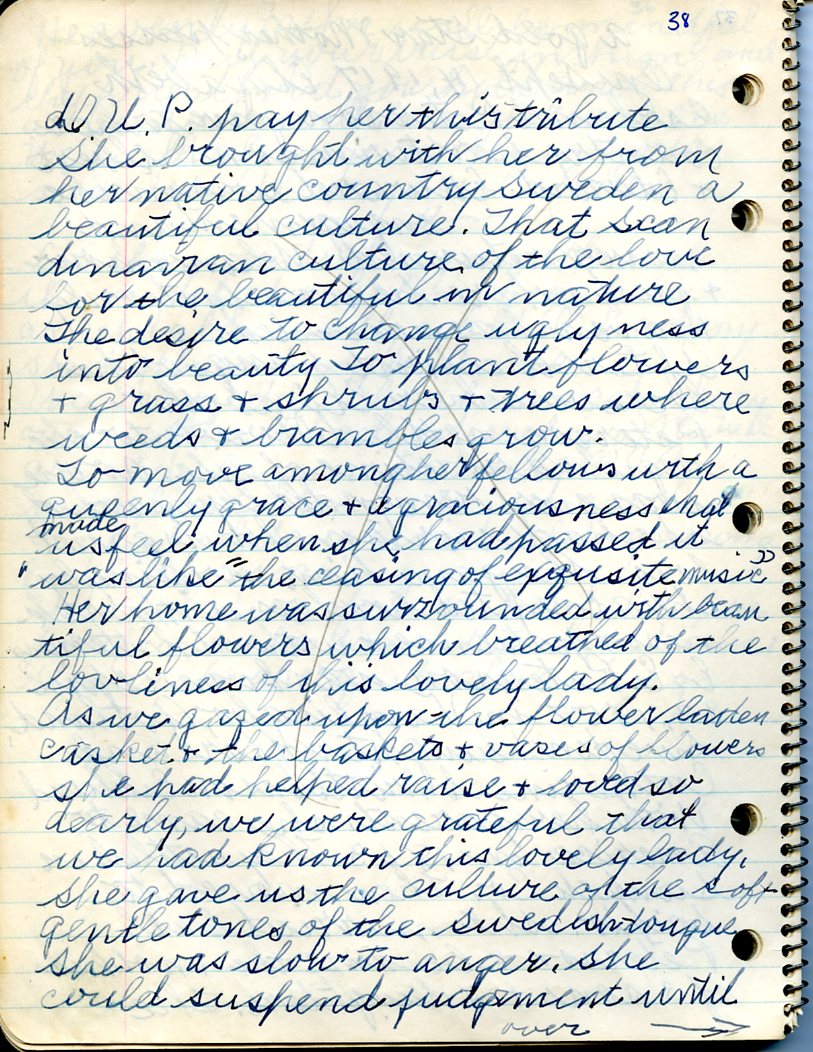 38
D. U. P. pay her this tribute
She brought with her from
her native country Sweden a
beautiful culture. That Scan
dinavian culture of the love
for the beautiful in nature
The desire to change ugly ness
into beauty To plant flowers
+ grass + shrubs + trees where
weeds + brambles grow.
To move among her fellows with a
queenly grace + a graciousness that
made
us feel, when she had passed it
"was like "the ceasing of exquisite music"
Her home was surrounded with beau
tiful flowers which breathed of the
lovliness of this lovely lady.
As we gazed upon the flower laden
casket + the baskets + vases of flowers
she had helped raise + loved so
dearly, we were grateful that
we had known this lovely lady.
She gave us the culture of the soft
gentle tones of the Swedish tongue
She was slow to anger. She
could suspend judgement until
over →